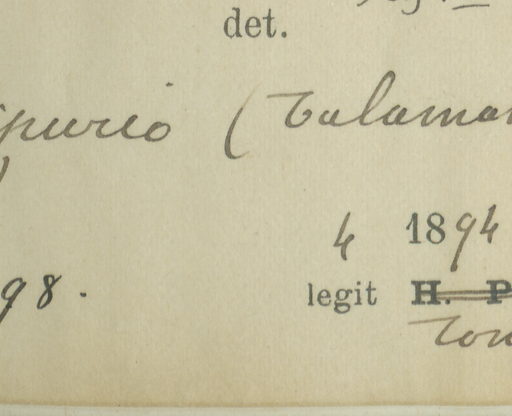 det.
ipurio (Talaman
4 1894
98. legit H. P
Ton